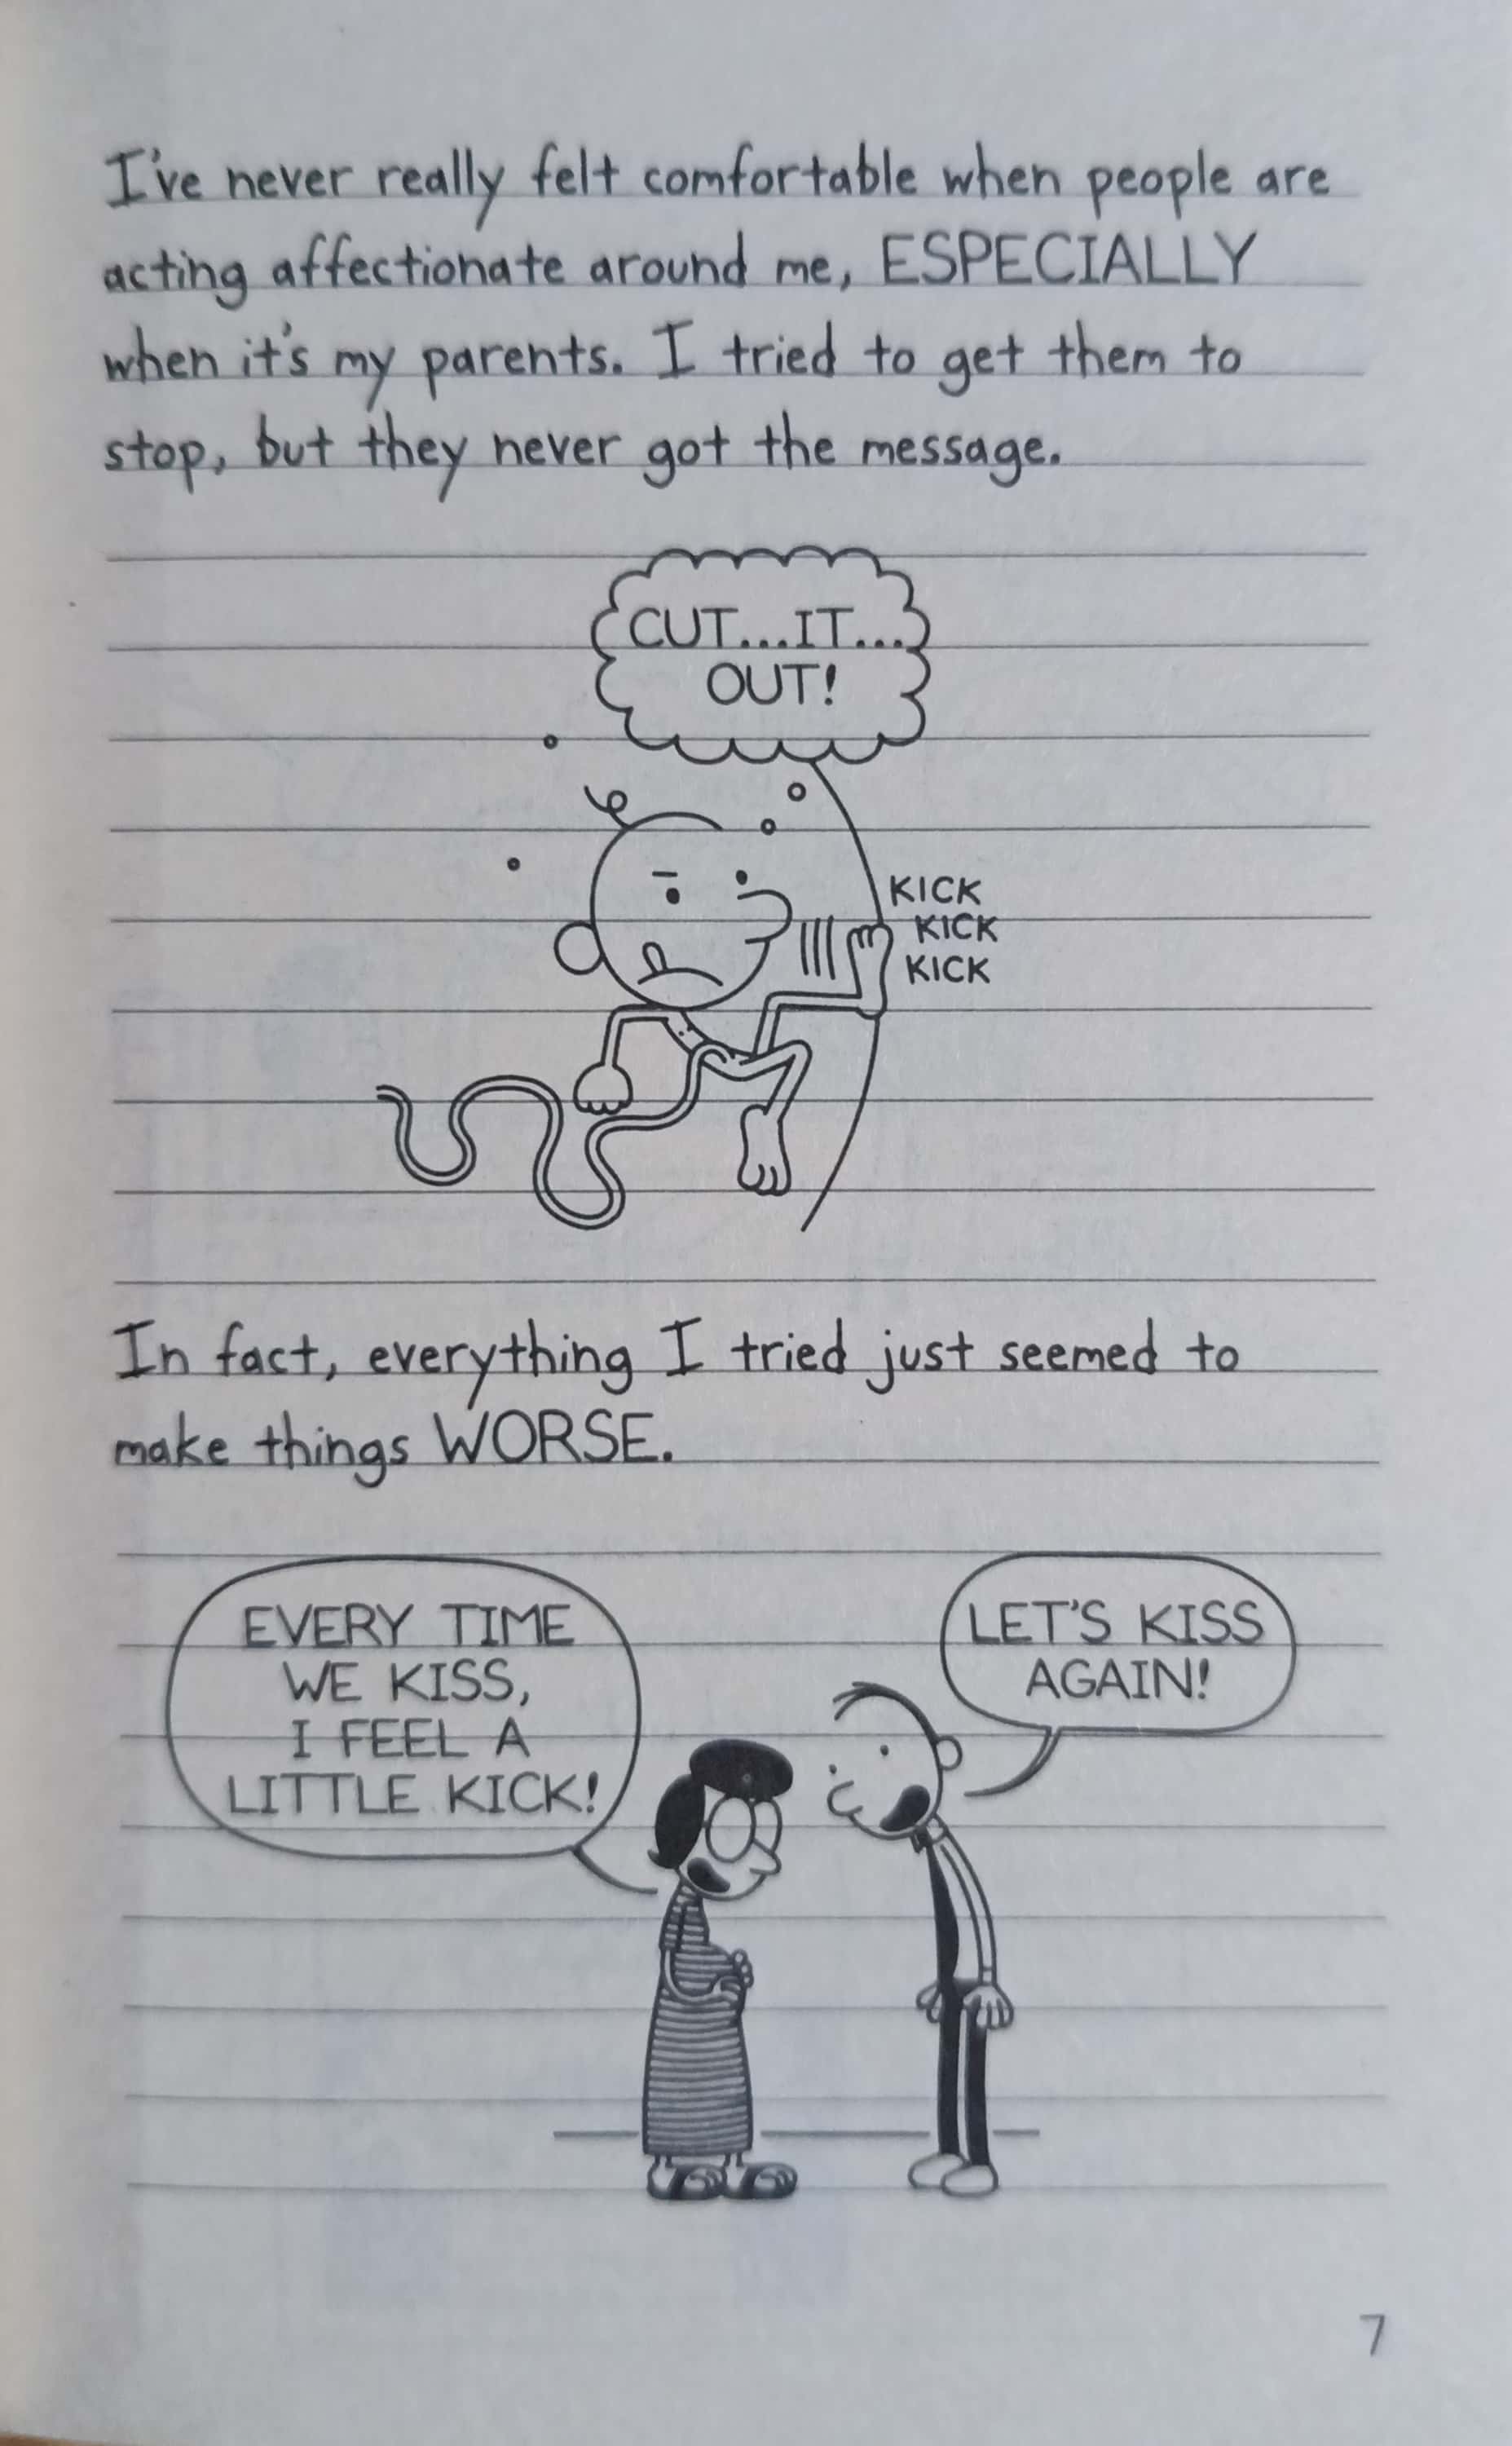 I've never really felt comfortable when people are
acting affectionate around me, ESPECIALLY
when it's my parents. I tried to get them to
stop, but they never got the message.
CUT...IT...
OUT!
KICK
KICK
KICK
In fact, everything I tried just seemed to
make things WORSE.
EVERY TIME
WE KISS,
I FEEL A
LITTLE KICK!
LET'S KISS
AGAIN!
7